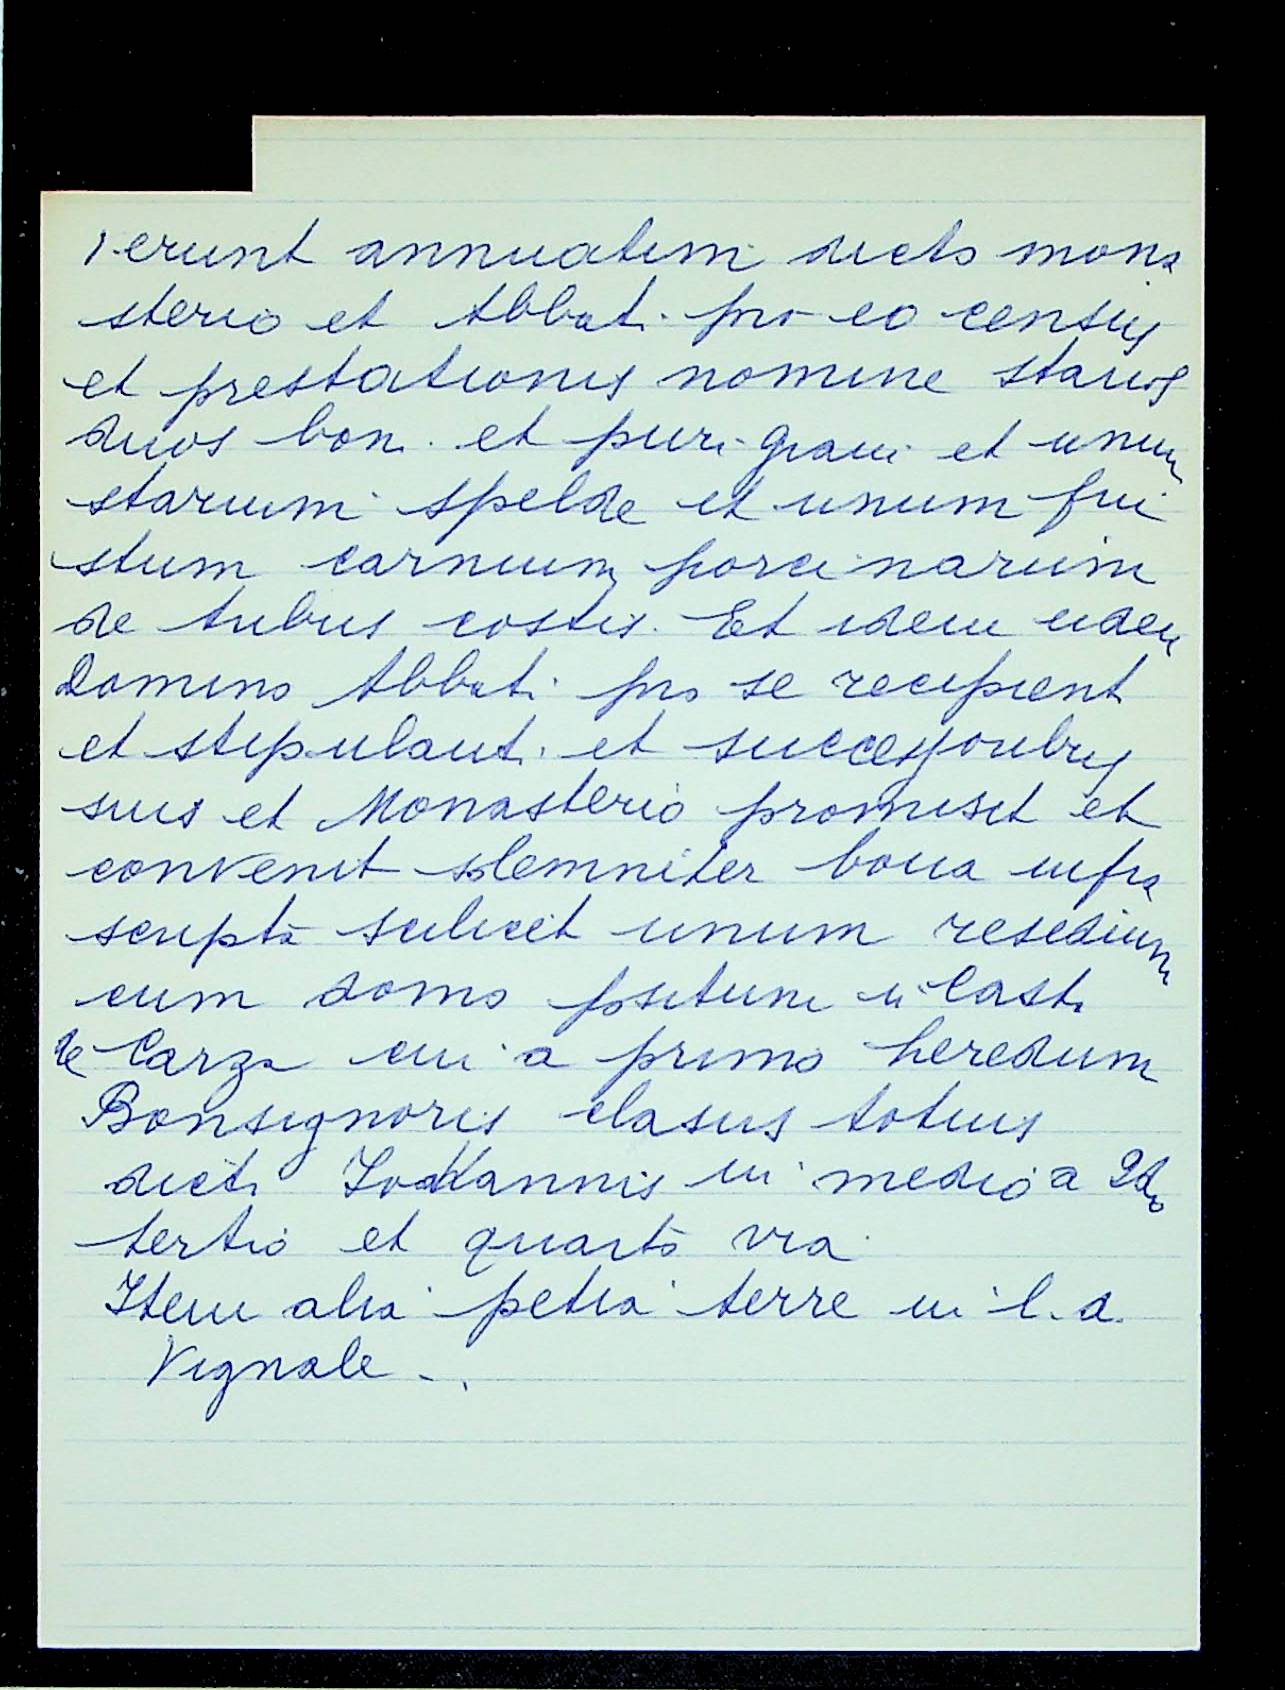 rerunt annuatim dicto mona
sterio et Abbati pro eo censuj
et prestationis nomine starios
duos boni et puri grani et unum
starium spelde et unum fui
stum carnium porcinarum
de tribus costis. Et idem eidem
Domino Abbati pro se recipient
et stipulanti et successoribus
suis et Monasterio promisit et
convenit solemniter bona infra
scripta scilicet unum resedium
cum domo positum in Cast.
de Carza cui a primo heredum
Bonsignoris classus totius
dicti Johannis in medio a 2do
tertio et quarto via
Item alia petia terre in l. d.
Vignale -.